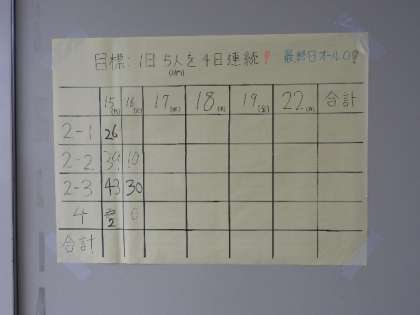 目標:1日5人を4日連続! 最終日オール0!
15 16 17 18 19 22 合計
2-1 26
2-2 10
2-3 43 30
4 0
合計